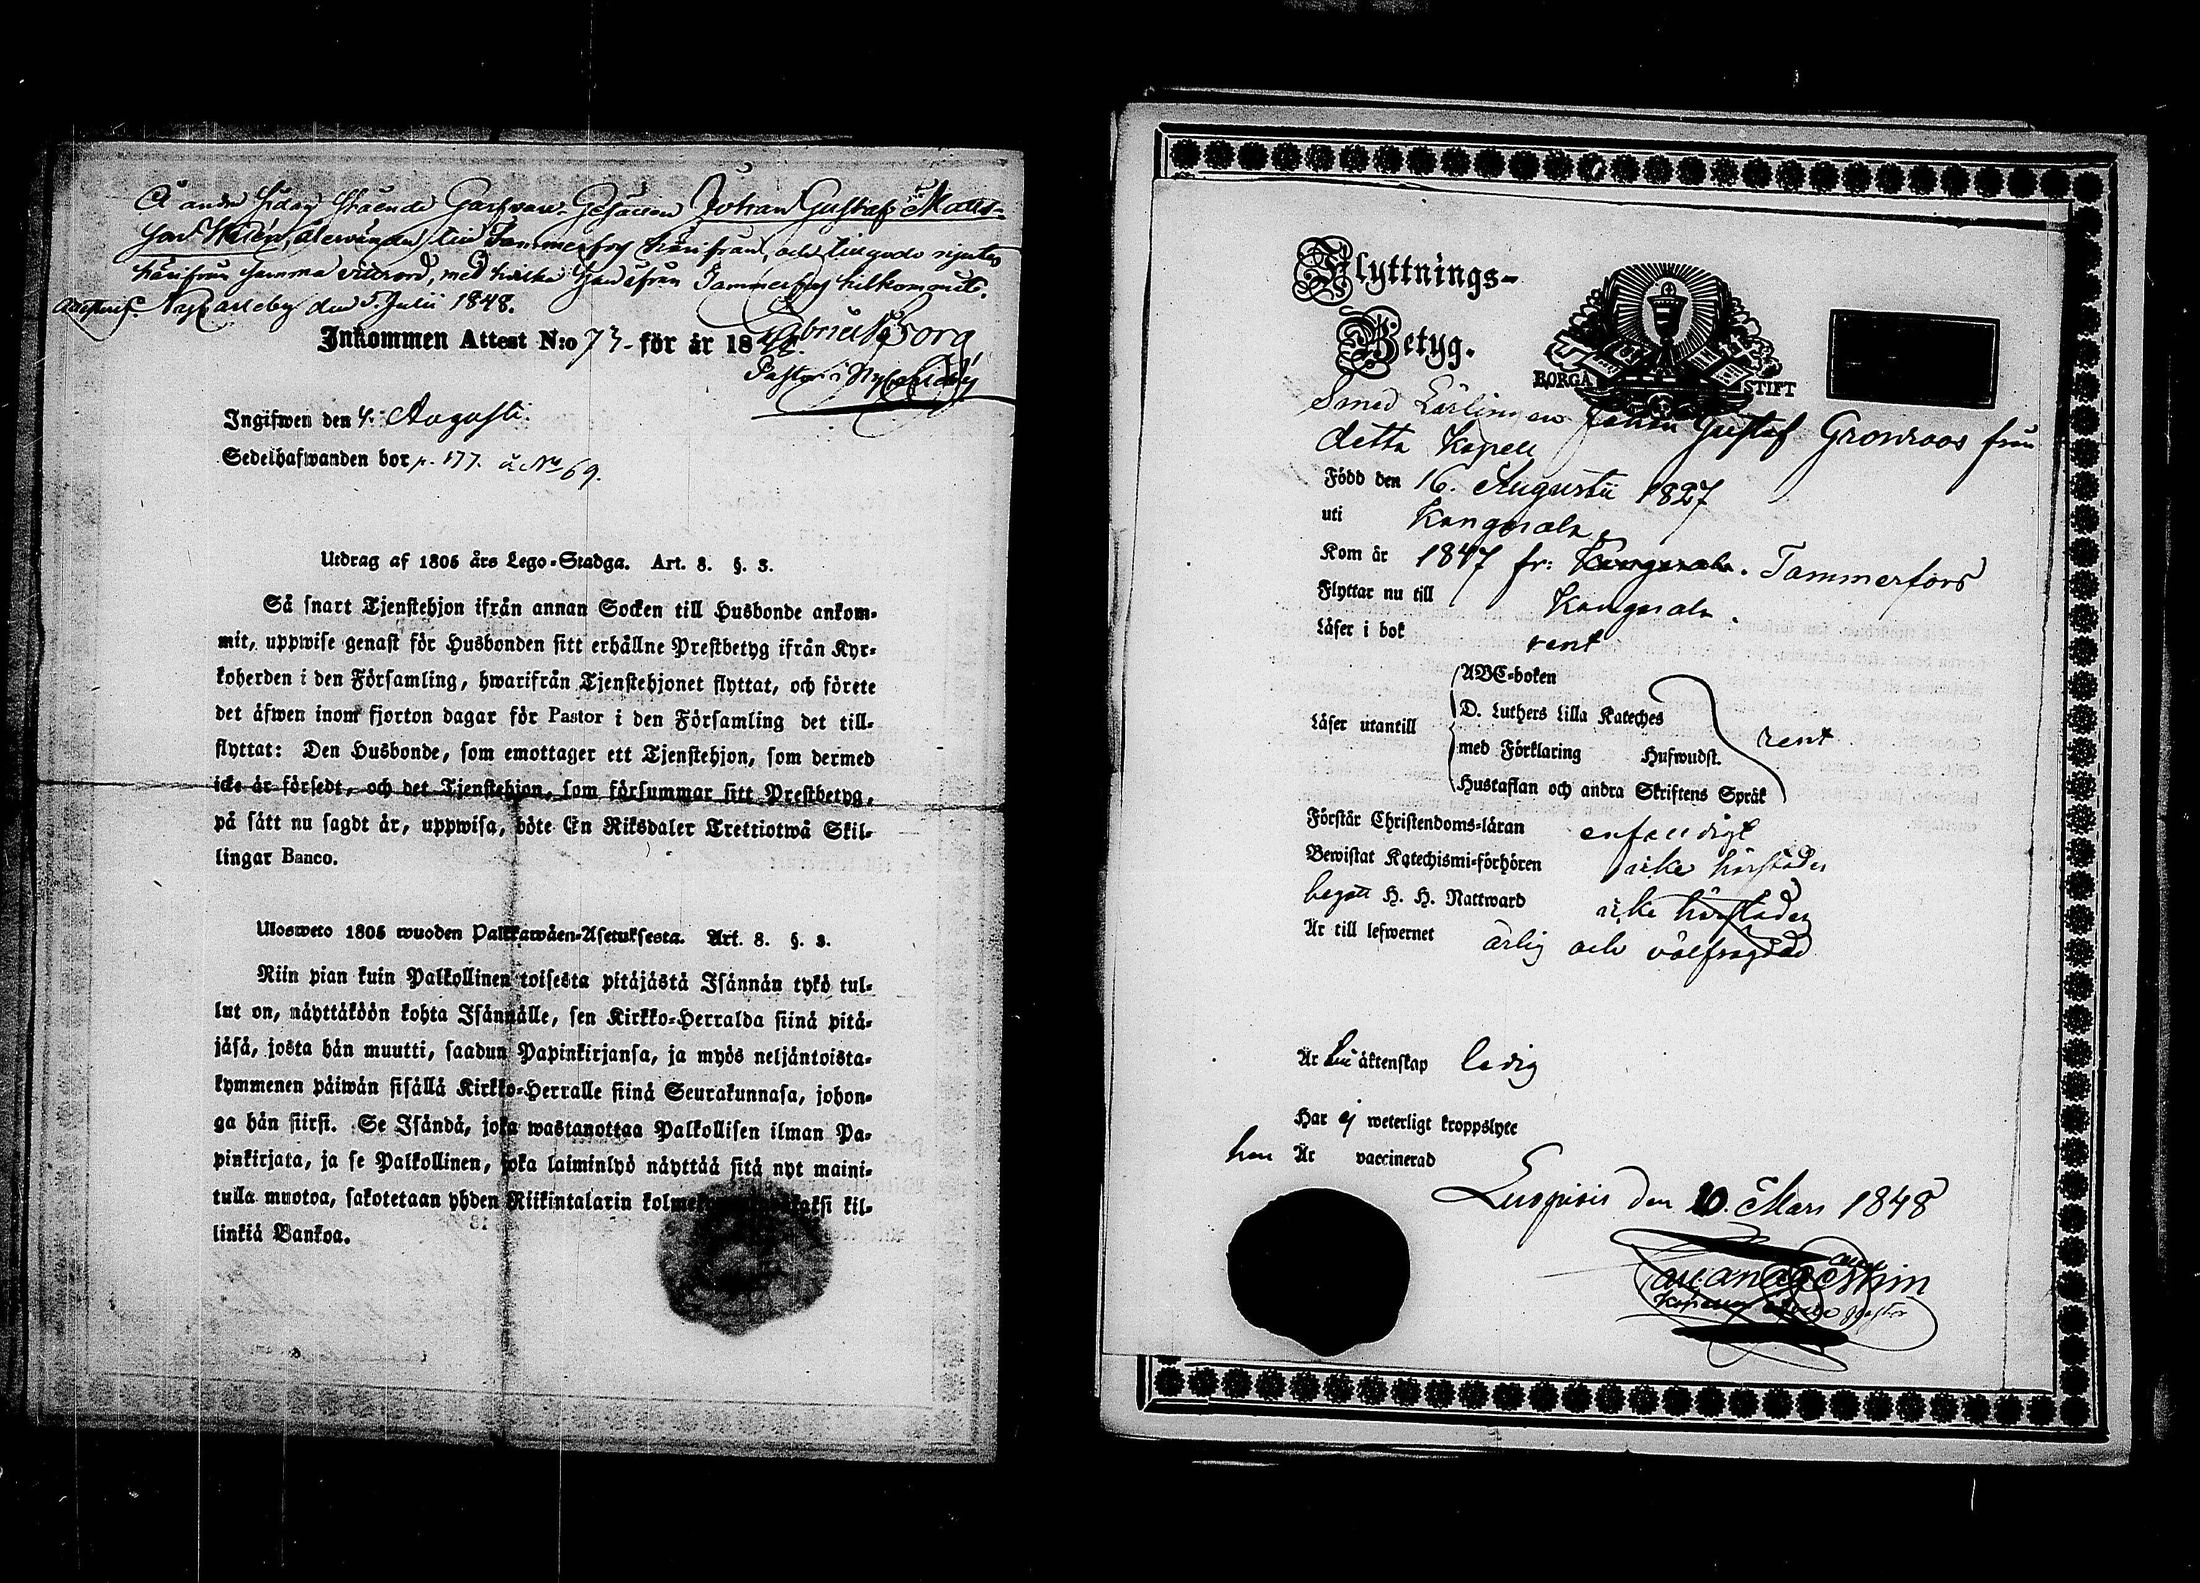 Å andra sidan stående Garfvare-Gesällen Johan Gustaf Matts-
son Walén, återvänder till Tammerfors härifrån, och tillgodo njuter
härifrån samma vittnord, med hvilka han ifrån Tammerfors hitkommit.
attest. NyCarleby den 5 Julii 1848.
Gabriel Borg
Pastor i NyCarleby
Inkommen Attest N:o 73 för år 1848.
Ingifwen den 4. Augusti.
Sedelhafwanden bor p. 177. å No 69.
Utdrag af 1805 års Lego-Stadga. Art. 8. §. 3.
Så snart Tjenstehjon ifrån annan Socken till Husbonde ankom-
mit, uppwise genast för Husbonden sitt erhållne Prestbetyg ifrån Kyr-
koherden i den Församling, hwarifrån Tjenstehjonet flyttat, och förete
det äfwen inom fjorton dagar för Pastor i den Församling det till-
flyttat: Den Husbonde, som emottager ett Tjenstehjon, som dermed
icke är försedt, och det Tjenstehjon, som försummar sitt Prestbetyg,
på sätt nu sagdt är, uppwisa, böte En Riksdaler Trettiotwå Skil-
lingar Banco.
Ulosweto 1805 wuoden Palkkawäen-Asetuksesta. Art. 8. §. 3.
Niin pian kuin Palkollinen toisesta pitäjästä Isännän tykö tul-
lut on, näyttäköön kohta Isännälle, sen Kirkko-Herralda siinä pitä-
jäsä, josta hän muutti, saadun Papinkirjansa, ja myös neljäntoista-
kymmenen päiwän sisällä Kirkko-Herralle siinä Seurakunnasa, johon-
ga hän siirsi. Se Isändä, joka wastanottaa Palkollisen ilman Pa-
pinkirjata, ja se Palkollinen, joka laiminlyö näyttää sitä nyt maini-
tulla muotoa, sakotetaan yhden Riikintalarin kil-
linkiä Bankoa.
Flyttnings-
Betyg.
BORGÅ STIFT
Smed Lärlingen Johan Gustaf Grönroos från
detta Kapell
Född den 16. Augustii 1827
uti Kangasala
Kom år 1847 fr: Kangasala. Tammerfors
Flyttar nu till Kangasala.
Läser i bok rent
ABC-boken
D. Luthers Lilla Kateches
Läser utantill
med Förklaring Hufwudst. rent
Hustaflan och andra Skriftens Språk
Förstår Christendoms-läran enfalldigt
Bewistat Katechismi-förhören icke härstädes
begått H. H. Nattward icke härstädes
Är till lefwernet ärlig och välfrägdad
Är till äktenskap ledig
Har ej weterligt kroppslyte
Är vaccinerad
den 10. Mars 1848